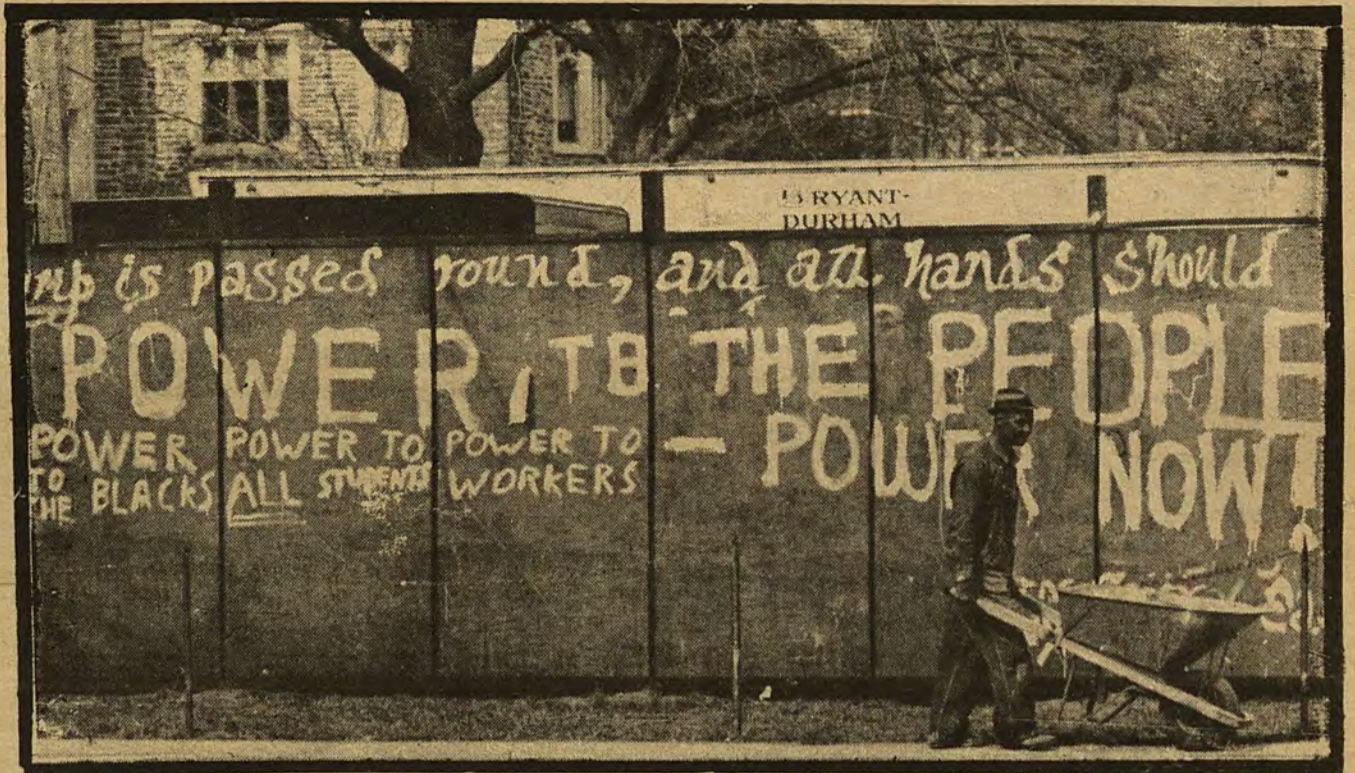 BRYANT-
DURHAM
is passed round, and all hands should
POWER, TO THE PEOPLE
POWER TO THE BLACKS
POWER TO ALL STUDENTS
POWER TO WORKERS
— POWER NOW!